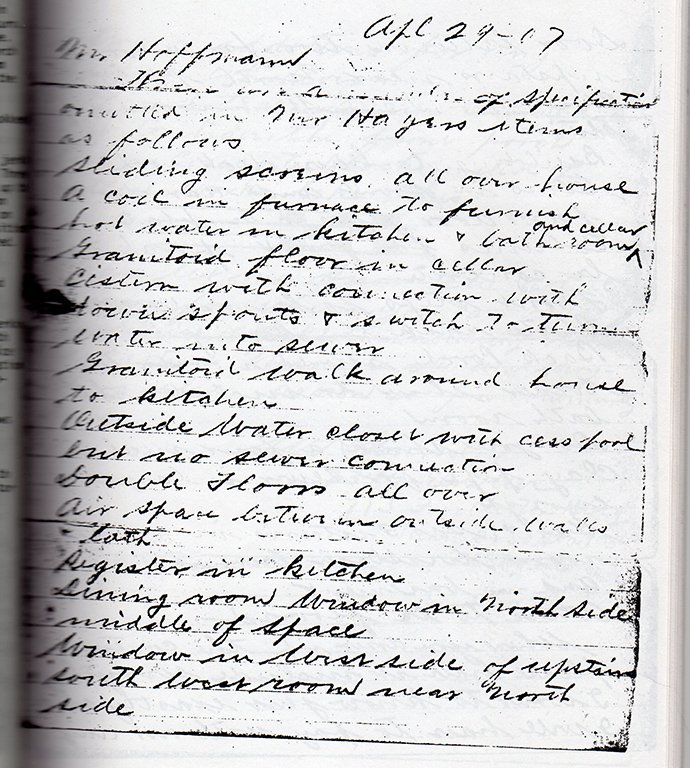 Apl 29-07
Mr. Hoffmann
There was a number of specification
omitted in Mr Hagers items
as follows.
Sliding screens all over house
A coil in furnace to furnish
hot water in kitchen & bath room and cellar
Granitoid floor in cellar
Cistern with connection with
down spouts & switch to turn
water into sewer
Granitoid walk around house
to kitchen
Outside water closet with cess pool
but no sewer connection
Double floors all over
Air space between outside walls
lath
Register in kitchen
Dining room window in North side
middle of space
Window in West side of upstairs
south west room near North
side